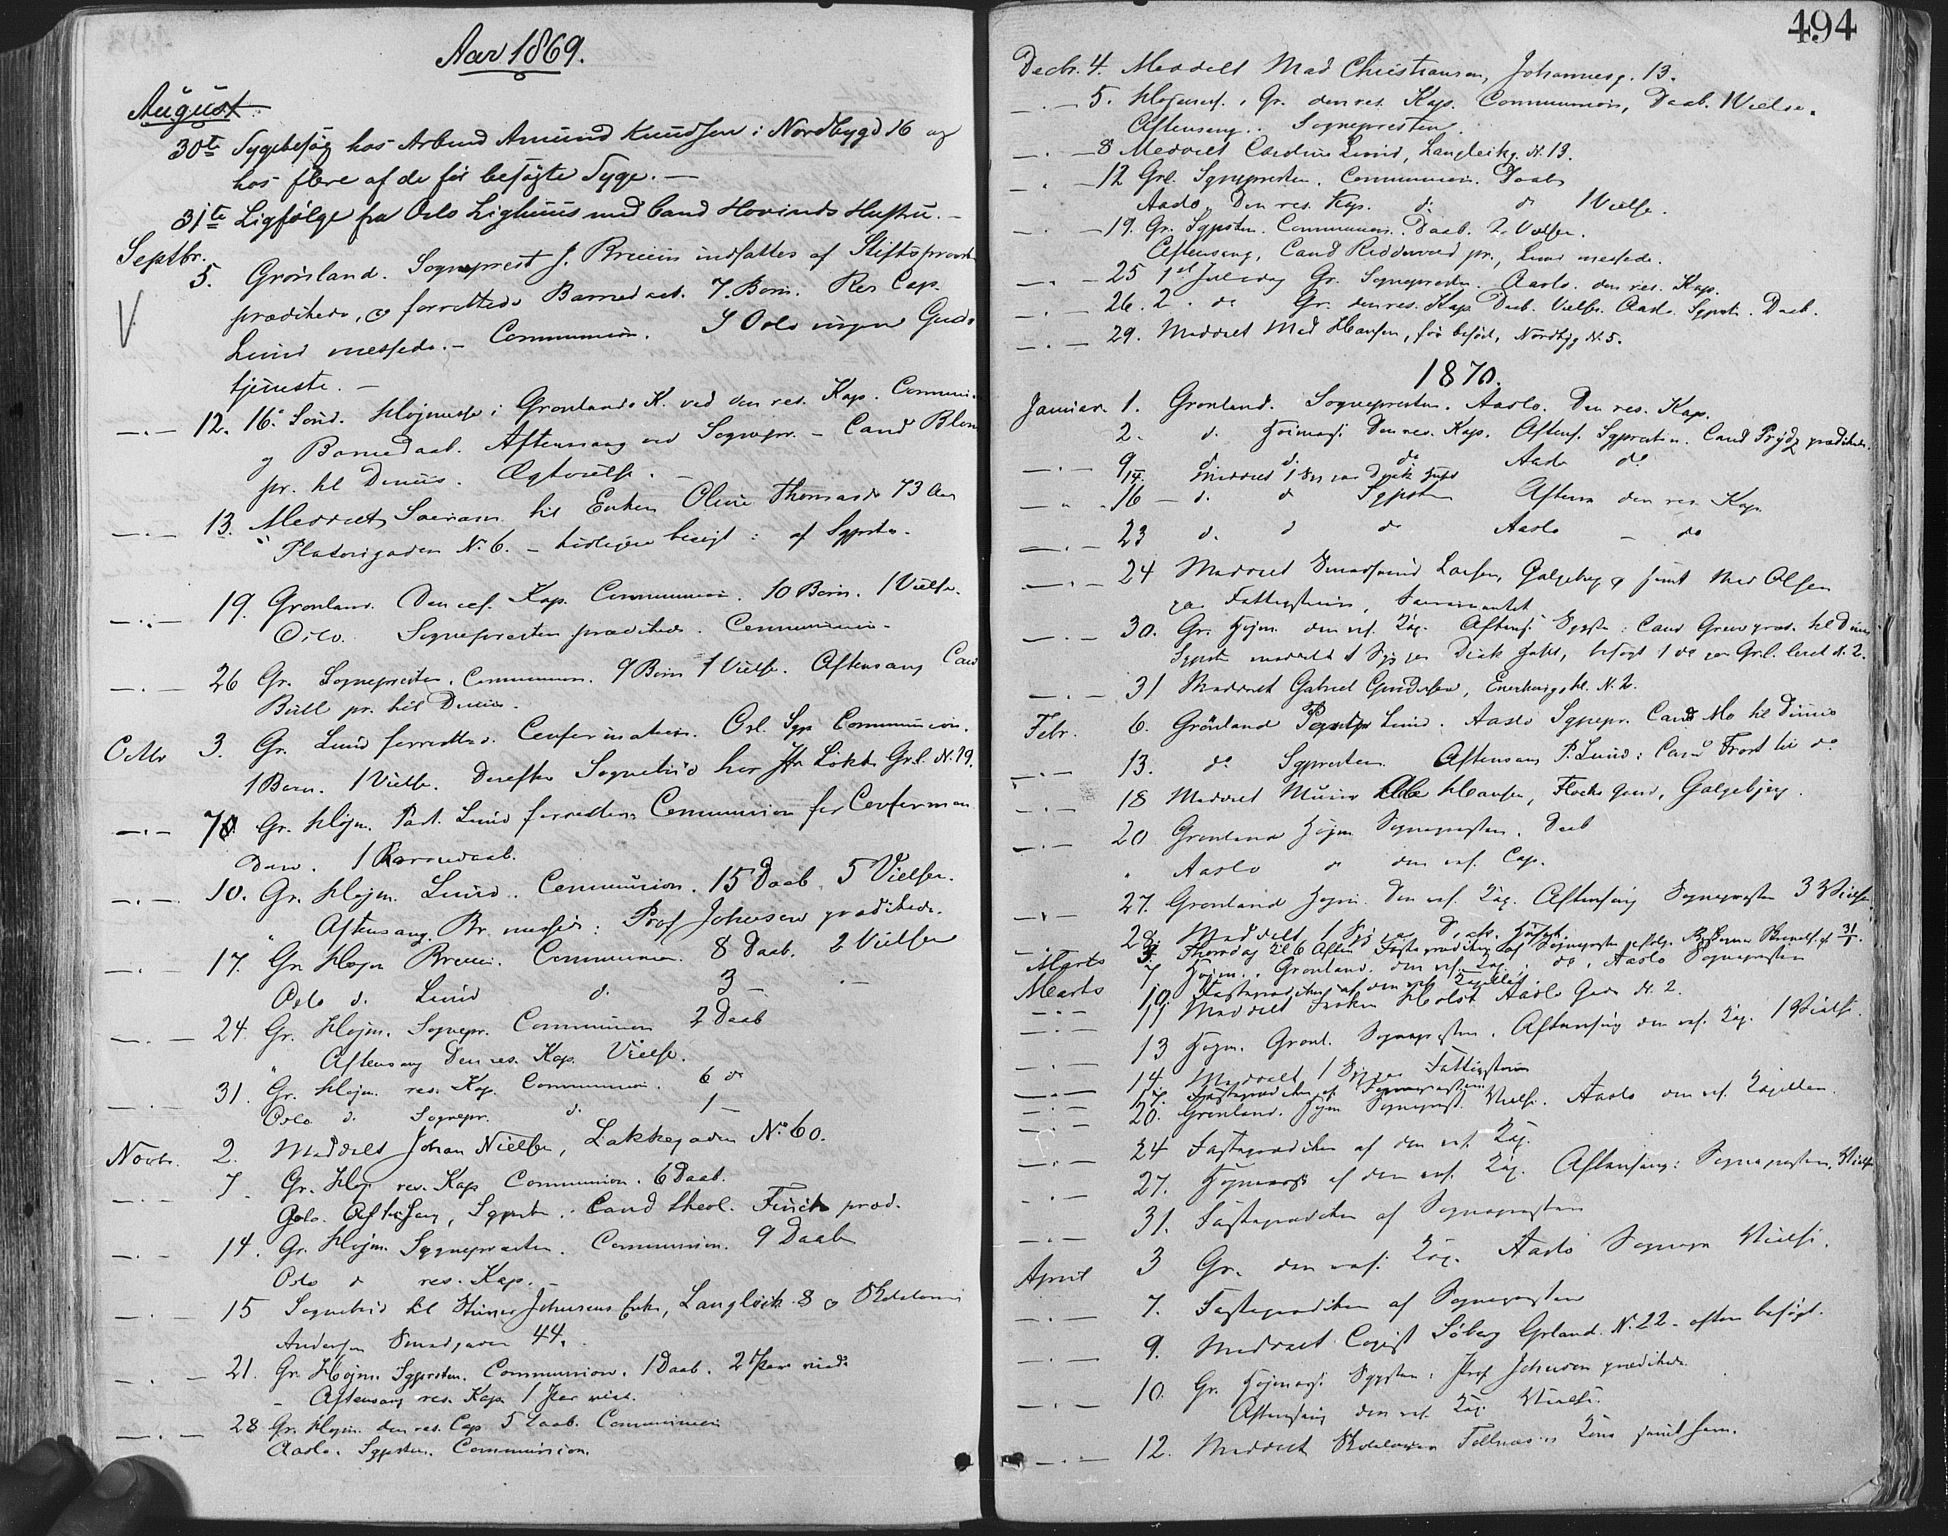 Aar 1869.
August.
30te Sygebesøg hos Arbmd Amund Knudsen i Nordbygd 16 og
hos flere af de før besøgte Syge. —
31te Ligfølge fra Oslo Lighuus med Cand Hovinds Hustru. —
Septbr.
5. Grønland. Sogneprest J. Bruun indsattes af Stiftsprovst
prædikede, og forrettede Barnedaab. 7 Børn. Res Cap.
Lund messede. — Communion. I Oslo ingen Guds
tjeneste. —
— . — 12. 16. Sønd. Højmesse i Grønlands K. ved den res. Kap. Communion
og Barnedaab. Aftensang ved Sognepr. — Cand Blom
pr. til Dimis. Ægtevielse. —
— . — 13. Meddelt Sacram. til Enken Oline Thomasd. 73 Aar
Platousgaden N. 6. — tidligere besøgt : af Sgprsten.
— . — 19. Grønland. Den res. Kap. Communion. 10 Børn. 1 Vielse.
Oslo. Sognepresten prædikede. Communion.
— . — 26 Gr. Sognepresten. Communion. 9 Børn 1 Vielse. Aftensang Cand
Bull pr. til Dimis.
Octbr 3. Gr. Lund forrettede Confirmation. Osl. Sgp Communion.
1 Barn. 1 Vielse. Derefter Sognebud hos Løkke Grl. N. 19.
— . — 7 Gr. Højm. Past. Lund forrettede Communion for Confirman
derne. 1 Barnedaab.
— . — 10. Gr. Højm. Lund. Communion. 15 Daab. 5 Vielser.
" Aftensang. Br. messede : Prof Johnson prædikede.
— . 17. Gr. Højm Bruun. Communion. 8 Daab. 2 Vielser
Oslo d. Lund d. 3 — . —
— . — 24. Gr. Højm. Sognepr. Communion 2 Daab
" Aftensang Den res. Kap. Vielse.
— . — 31. Gr. Højm. res. Kap. Communion. 6 do
Oslo d. Sognepr. d. 1 —
Novbr. 2. Meddelt Johan Nielsen, Lakkegaden No 60.
— . — 7. Gr. Høj. res. Kap Communion. 6 Daab.
Oslo. Aftensang, Sgprsten. Cand theol. Finch præd.
— . — 14. Gr. Højm. Sognepresten. Communion. 9 Daab
Oslo d res. Kap. —
— . — 15 Sognebud til Johnsens Enke, Langleik. 8 og
Andersen Smedgaden 44.
— . — 21. Gr. Højm. Sgprsten. Communion. 1 Daab. 2 Par viede
— Aftensang res. Kap. 1 Par viet.
— . — 28 Gr. Højm. den res. Cap 5 Daab. Communion
Aaslo. Sgpsten. Communion.
494
Decbr. 4. Meddelt Mad Christiansen, Johannesg. 13.
— . — 5. Højmesse. Gr. den res. Kap. Communion, Daab. 1 Vielse.
Aftensang. Sognepresten.
— . — 8 Meddelt Lund, Langleikg. N. 13.
— . — 12 Grl. Sgnepresten. Communion. Daab
Aaslo. Den res. Kap. d. do 1 Vielse.
— . — 19. Gr. Sgpsten. Communion. Daab. 2 Vielser.
Aftensang, Cand Reddervold pr., Lund messede.
— . — 25 1st Juledag Gr. Sognepresten. Aaslo. den res. Kap.
— . — 26. 2. do Gr. den res. Kap Daab. Vielse. Aaslo. Sgpstn. Daab.
— . — 29. Meddelt Mad Hansen, før besøgt, Nordbyg N. 5.
1870.
Januar. 1. Grønland. Sognepresten. Aaslo. Den res. Kap.
2. d. Høimesse Den res. Kap. Aftens. Sgpresten. Cand Prydz prædikede.
— . — 9 d. d. do Aaslo do
14. Meddelt 1 Syg paa
— " — 16 — d. d Sgpsten Aftens den res. Kap
— . — 23 d. d do Aaslo — do
— . — 24 Meddelt Larsen, Galgebrg og samt Mad Olsen
paa Fattigstuen, Sacramentet.
— . — 30. Gr. Højm. den res. Kap. Aftens. Sgpstn : Cand præd. til Dimis
Sgpstn meddelt 1 Syg paa, besøgt 1 do paa Grl. leret N. 2.
— . — 31 Meddelt Gabriel Gundersen, Enerhaugsbk. N. 2.
Febr. 6. Grønland Lund. Aaslo Sgnepr. Cand Mo til Dimis
— . — 13. do Sgpresten. Aftensang P. Lund : Cand Frost til do
— . — 18 Meddelt Hansen, Galgebjerg.
— . — 20 Grønland Højm Sognepresten. Daab
" Aaslo do den res. Cap.
— . — 27. Grønland Højm. Den res. Kap. Aftensang Sognepresten 3 Vielser.
28. Meddelt 1 Syg
Marts 3. Thorsdag Kl 6 Aften Fasteprædiken af Sognepresten
7 Højm. Grønland. den res. Kap. do. Aaslo Sognepresten
Marts 10 Fasteprædiken af den res. Capellan
— . — 11 Meddelt Frøken Holst Aaslo Gade N. 2.
— . — 13 Højm. Grønl. Sognepresten. Aftensang den res. Kap. 1 Vielse.
— . — 14. Meddelt 1 Syg paa Fattigstuen
— . — 17. Fasteprædiken af Sognepresten.
— . — 20. Grønland. Højm Sogneprest. Vielse. Aaslo den res. Kapellan.
— . — 24 Fasteprædiken af den res. Kap.
— . — 27. Højmesse af den res. Kap. Aftensang : Sognepresten, Vielse
— . — 31. Fasteprædiken af Sognepresten
April 3 Gr. den res. Kap. Aaslo Sognepr Vielse.
— . — 7. Fasteprædiken af Sognepresten
— . — 9. Meddelt Copist Søberg Grland. N. 22 — ofte besøgt.
— . — 10. Gr. Højmesse Sgpsten, Prof Johnson prædikede
Aftensang den res. Kap Vielse.
— . — 12. Meddelt Kone samt ham.